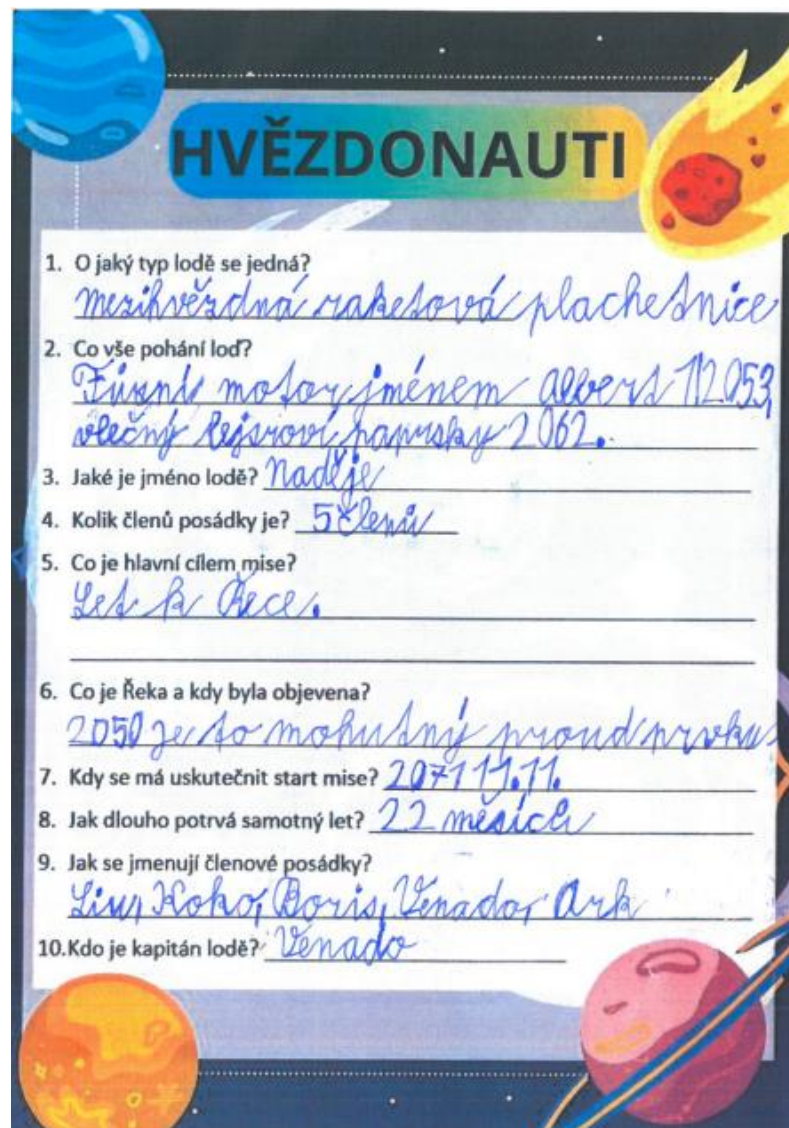 HVĚZDONAUTI
1. O jaký typ lodě se jedná?
mezihvězdná raketová plachetnice
2. Co vše pohání loď?
Fúzní motor jménem Albert 1 2053,
vlečný lejsroví paprsky 2062.
3. Jaké je jméno lodě? Naděje
4. Kolik členů posádky je? 5 členů
5. Co je hlavní cílem mise?
Let k Řece.
6. Co je Řeka a kdy byla objevena?
2050 je to mohutný proud prvku
7. Kdy se má uskutečnit start mise? 2071 11.11.
8. Jak dlouho potrvá samotný let? 22 měsíců
9. Jak se jmenují členové posádky?
Liu, Koko, Boris, Venado, Ark
10.Kdo je kapitán lodě? Venado